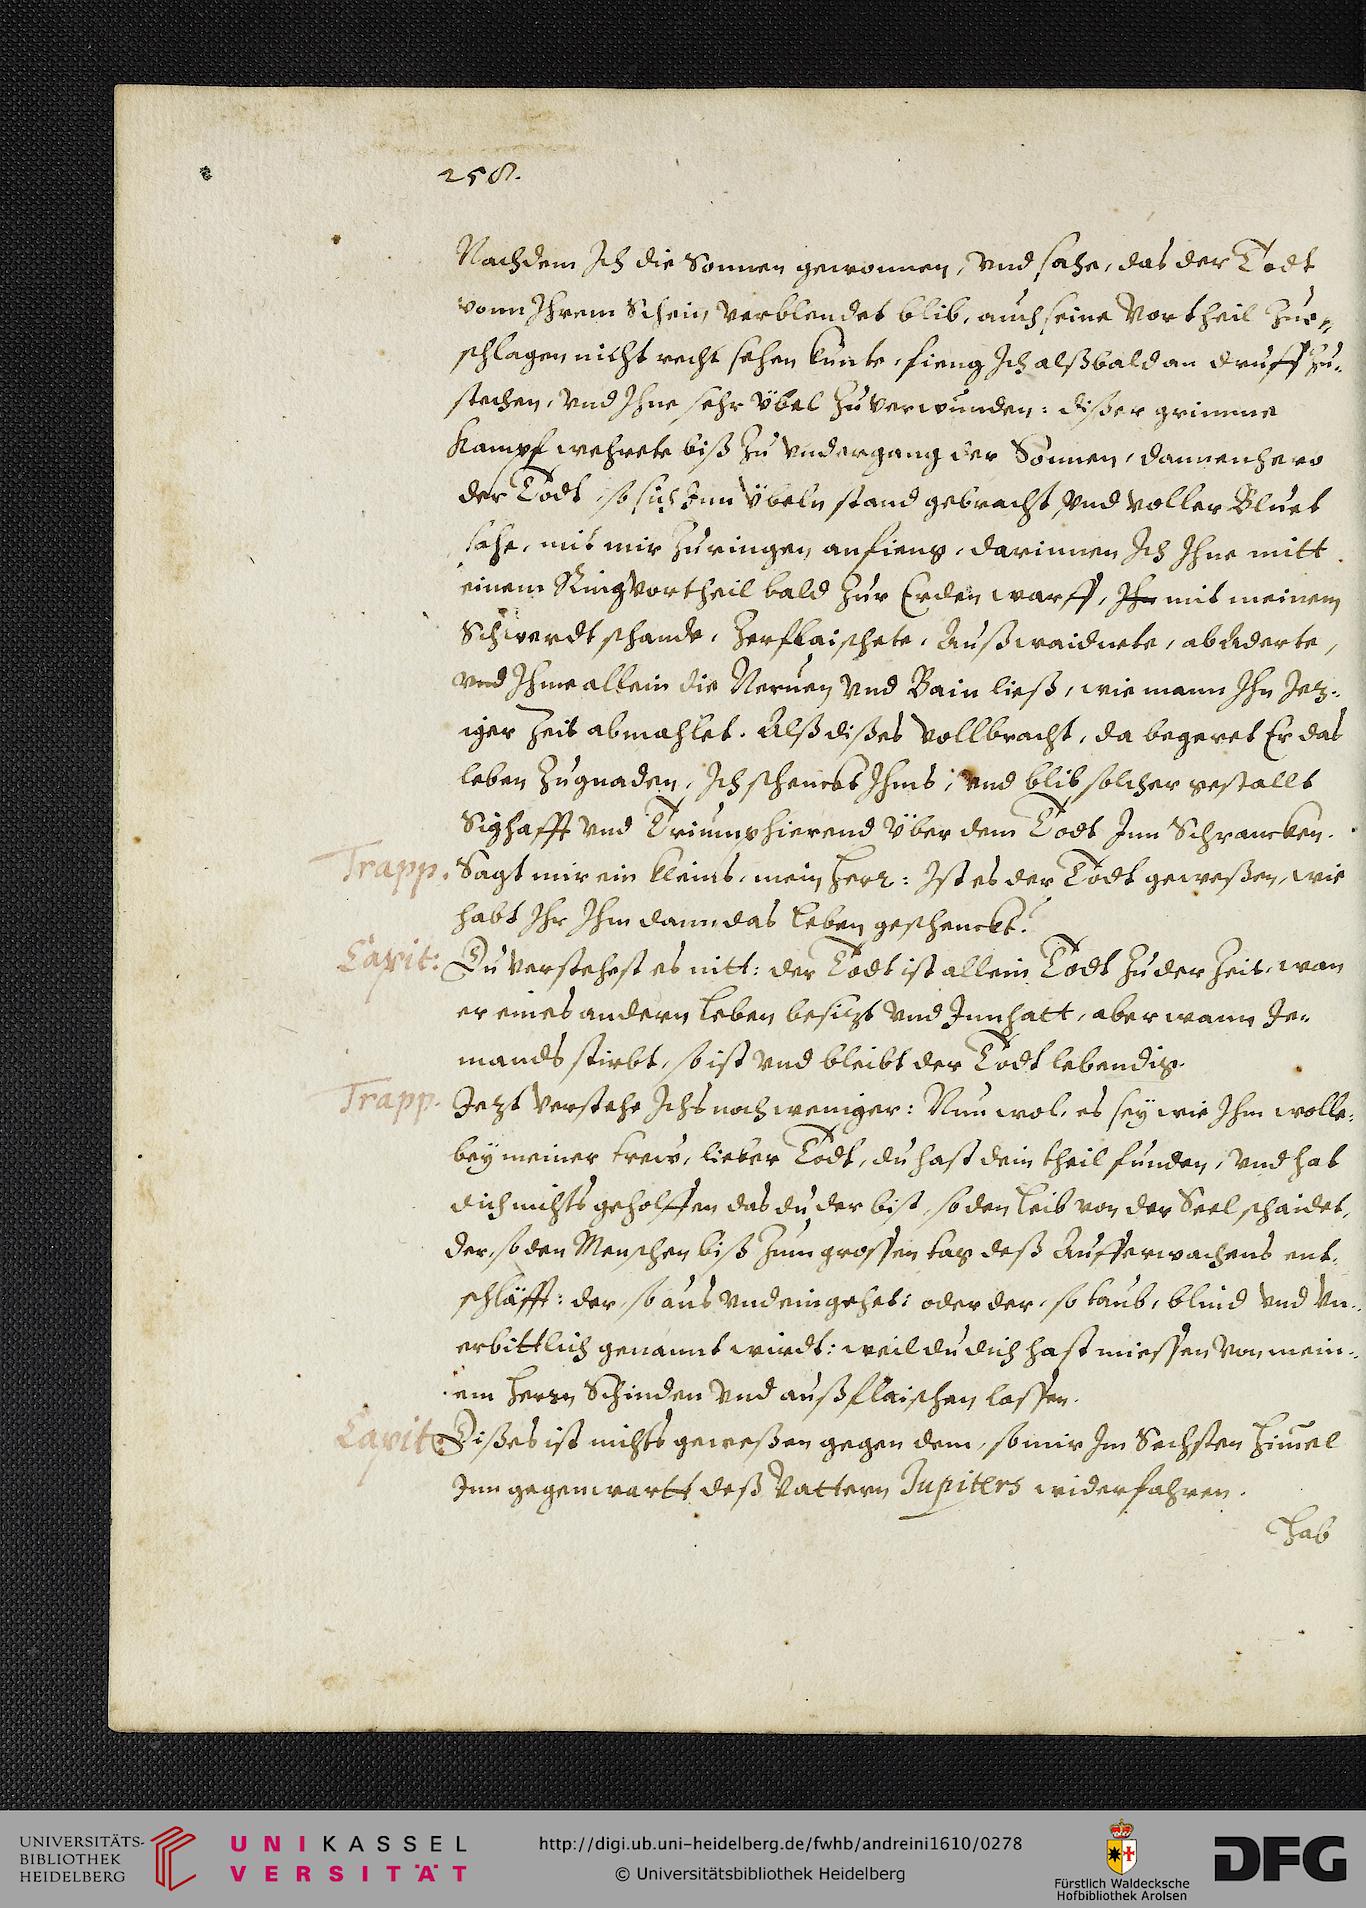 258.
Nachdem Ich die Sonnen gewonnen, vnd sahe, das der Todt
vonn Ihrem Schein verblendet blib, auch seine Vortheil zue,,
schlagen nicht recht sehen kunte, fieng Ich alßbald an druff zu-
stechen, vnd Ihne sehr übel zuverwunden: dißer grimme
Kampf wehrete biß zu vndergang der Sonnen, dannenhero
der Todt, so sich Inn übeln stand gebracht, vnd voller Bluet
sahe, mit mir zuringen anfieng, darinnen Ich Ihne mitt
einem Ringvortheil bald zur Erden warff, Ihn mit meinem
Schwerdt schande, Zerflaischete, Außwaidnete, abAderte,
vnd Ihme allein die Neruen vnd Bain ließ, wie mann Ihn Jez-
iger Zeit abmahlet. Alß dißes vollbracht, da begeret Er das
leben zugnaden, Ich schenckts Ihms, vnd blib solcher gestallt
Sighafft vnd Triumphierend über dem Todt Inn Schrancken.
Trapp. Sagt mir ein kleins, mein Herr: Ist es der Todt geweßen, wie
habt Ihr Ihm dann das leben geschenckt?
Capit: Du verstehest es nitt: der Todt ist allein Todt zu der Zeit, wan
er eines andern leben besizt vnd Innhatt, aber wann Je-
mands stirbt, so ist vnd bleibt der Todt lebendig.
Trapp. Jezt verstehe Ichs noch weniger: Nun wol, es sey wie Ihm wolle,
bey meiner trew, lieber Todt, du hast dein theil funden, vnd hat
dich nichts geholffen das du der bist, so den leib von der Seel schaidet,
der, so den Menschen biß zum grossen tag deß Aufferwachens ent-
schläfft: der, so aus vnd eingehet: oder der, so taub, blind vnd vn-
erbittlich genannt wirdt: weil du dich hast miessen von mein-
em Herrn Schinden vnd außflaischen lassen.
Capit: Dißes ist nichts geweßen gegen dem, so mir Im Sechsten Himel
Inn gegenwartt deß Vattern Jupiters widerfahren.
Hab
UNIVERSITÄTS-
BIBLIOTHEK
HEIDELBERG
UNIKASSEL
VERSITÄT
http://digi.ub.uni-heidelberg.de/fwhb/andreini1610/0278
© Universitätsbibliothek Heidelberg
Fürstlich Waldecksche
Hofbibliothek Arolsen
DFG